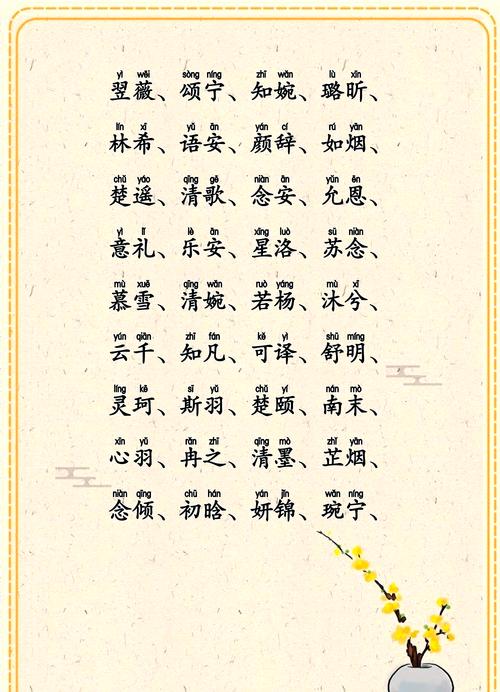 yì wēi sòng níng zhī wǎn lù xīn
翌薇、颂宁、知婉、璐昕、
lín xī yǔ ān yán cí rú yān
林希、语安、颜辞、如烟、
chǔ yáo qīng gē niàn ān yǔn ēn
楚遥、清歌、念安、允恩、
yì lǐ lè ān xīng luò sū niàn
意礼、乐安、星洛、苏念、
mù xuě qīng wǎn ruò yáng mù xī
慕雪、清婉、若杨、沐兮、
yún qiān zhī fán kě yì shū míng
云千、知凡、可译、舒明、
líng kē sī yǔ chǔ yí nán mò
灵珂、斯羽、楚颐、南末、
xīn yǔ rǎn zhī qīng mò zhǐ yān
心羽、冉之、清墨、芷烟、
niàn qīng chū hán yán jǐn wǎn níng
念倾、初晗、妍锦、琬宁、